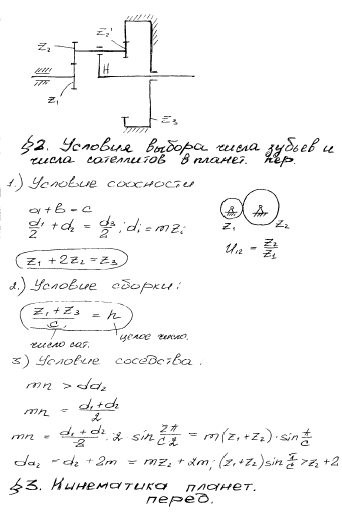 Z₂'
Z₂
H
Z₁
Z₃
§2. Условия выбора числа зубьев и
числа сателлитов в планет. пер.
1.) Условие соосности
a+b=c
d₁/2 + d₂ = d₃/2; dᵢ = mzᵢ
Z₁ Z₂
Z₁ + 2Z₂ = Z₃
U₁₂ = Z₂/Z₁
2.) Условие сборки:
(Z₁ + Z₃)/c = n
число сат. целое число.
3) Условие соседства.
mn > da₂
mn = (d₁+d₂)/2
mn = (d₁+d₂)/2 · 2 · sin 2π/(c2) = m(z₁+z₂)·sin π/c
da₂ = d₂ + 2m = mz₂ + 2m; (z₁+z₂)sin π/c > z₂+2
§3. Кинематика планет.
перед.